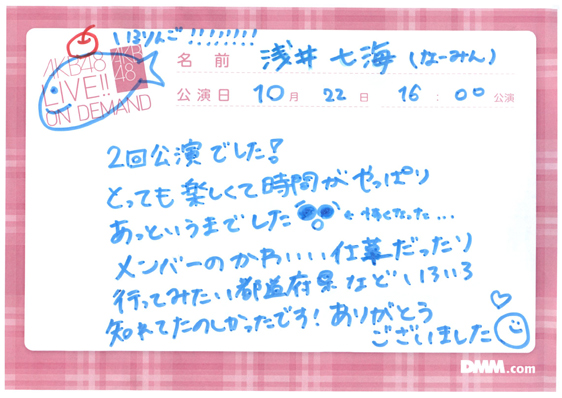 いろりんご!!!!!!!!
AKB48
LIVE!!
ON DEMAND
AKB
48
名前 浅井七海(なーみん)
公演日 10月 22日 16:00公演
2回公演でした!
とっても楽しくて時間がやっぱり
あっというまでした ←怖くなった...
メンバーのかわいい仕草だったり
行ってみたい都道府県などいろいろ
知れてたのしかったです!ありがとう
ございました
DMM.com